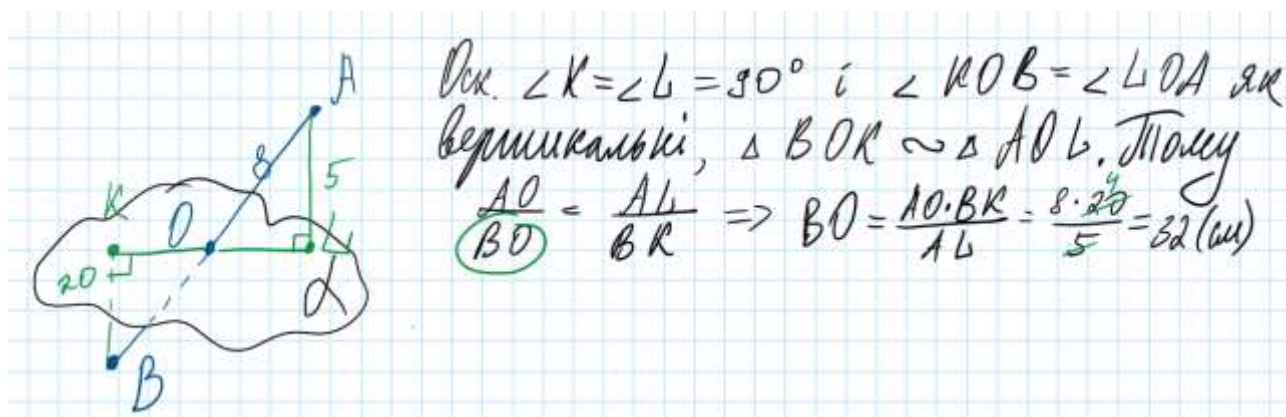 A
8
5
K
O
L
20
α
B
Оск. ∠K=∠L=90° і ∠KOB=∠LOA як
вертикальні, △BOK ~ △AOL. Тому
AO/BO = AL/BK => BO = AO·BK/AL = 8·20/5 = 32 (см)
4